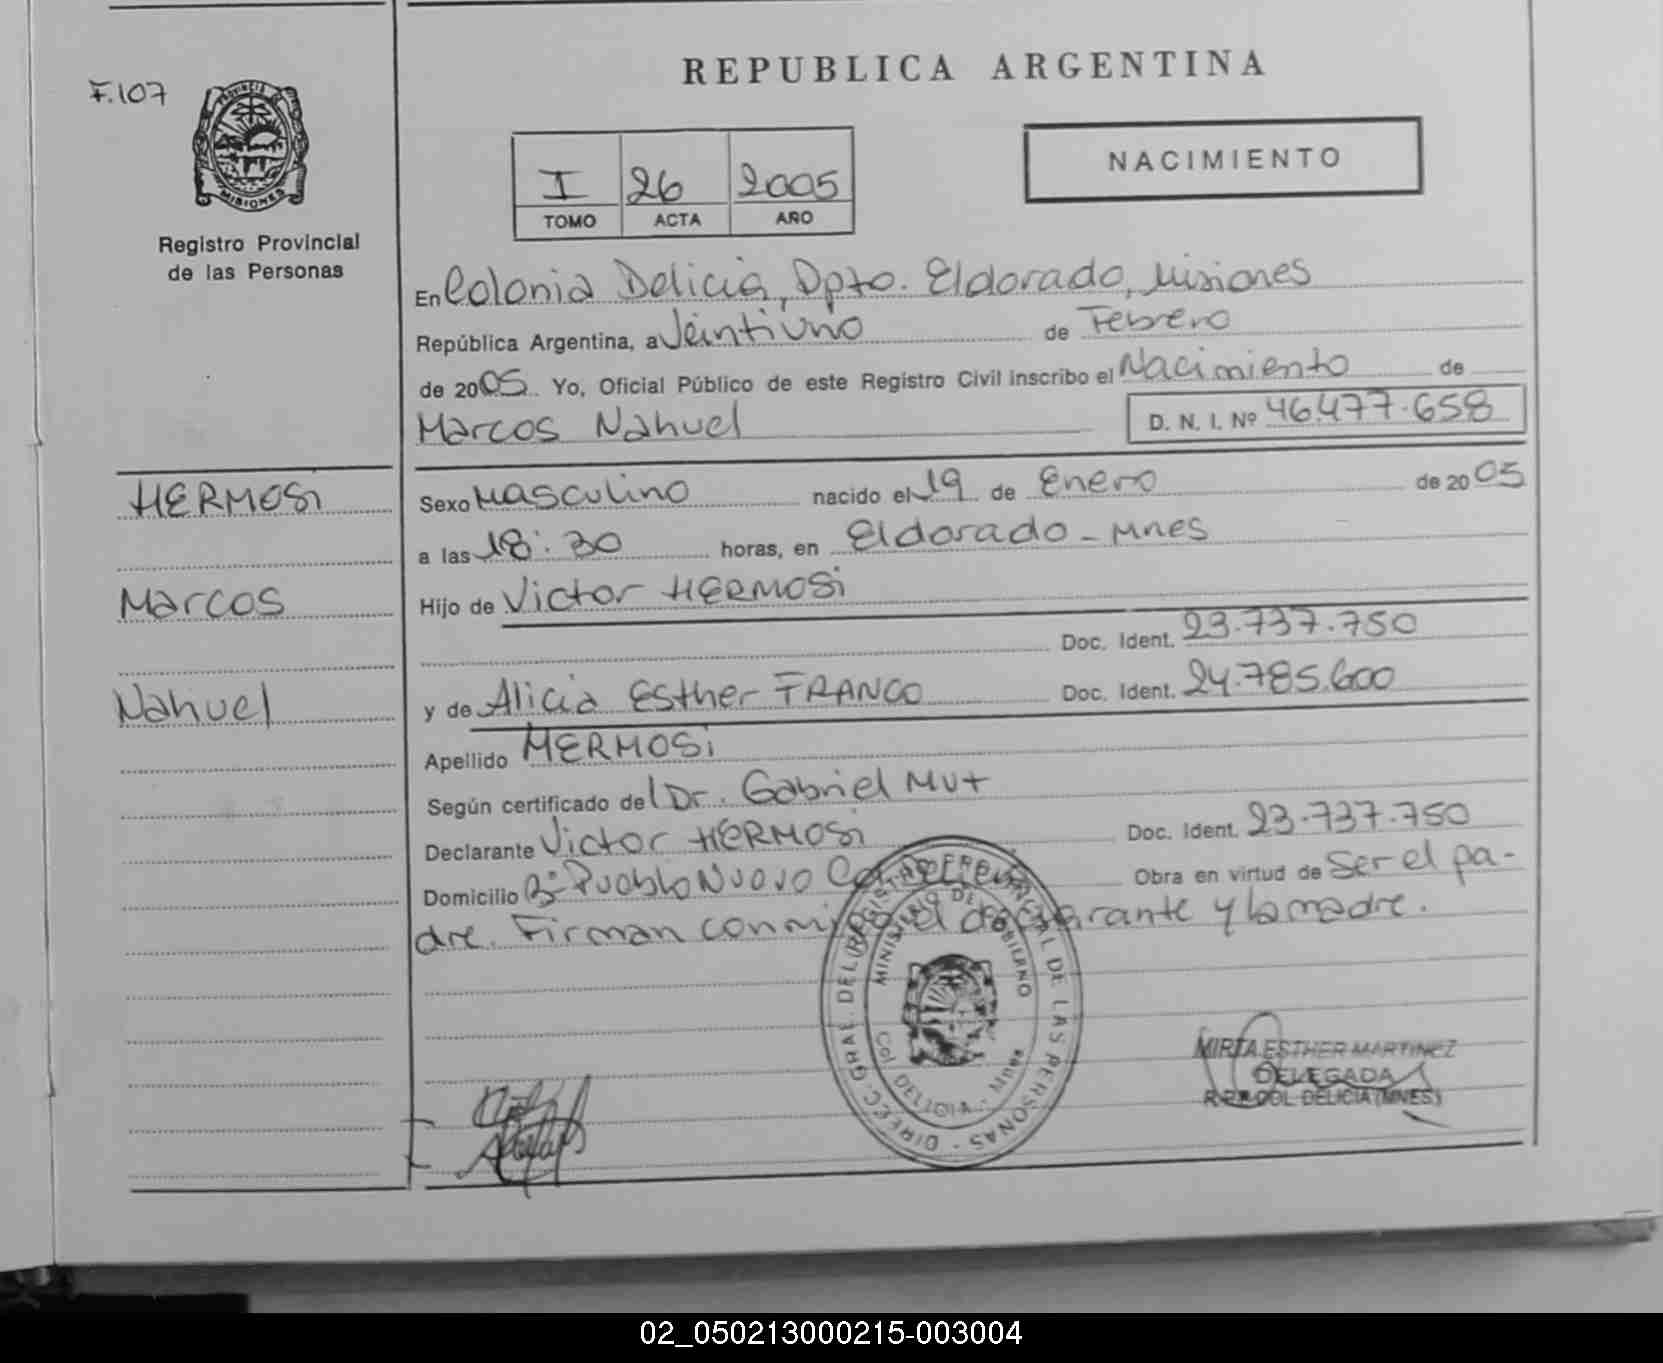 REPUBLICA ARGENTINA
F.107
PROVINCIA DE
MISIONES
Registro Provincial
de las Personas
I 26 2005
TOMO ACTA AÑO
NACIMIENTO
En Colonia Delicia, Dpto. Eldorado, Misiones
República Argentina, a Veintiuno de Febrero
de 2005 Yo, Oficial Público de este Registro Civil inscribo el Nacimiento de
Marcos Nahuel D. N. I. Nº 46.477.658
HERMOSi
Sexo Masculino nacido el 19 de Enero de 2005
a las 18:30 horas, en Eldorado - Mnes
Marcos
Hijo de Victor HERMOSi
Doc. Ident. 23.737.750
Nahuel
y de Alicia Esther FRANCO Doc. Ident. 24.785.600
Apellido HERMOSi
Según certificado del Dr. Gabriel Mut
Declarante Victor HERMOSi Doc. Ident. 23.737.750
Domicilio Bº Pueblo Nuevo Obra en virtud de Ser el pa-
dre. Firman conmigo el declarante y la madre.
DIREC. GRAL. DEL REGISTRO PROVINCIAL DE LAS PERSONAS
MINISTERIO DE GOBIERNO
Col DELICIA - Mnes
MIRTA ESTHER MARTINEZ
DELEGADA
R.P.P. COL DELICIA (MNES)
02_050213000215-003004